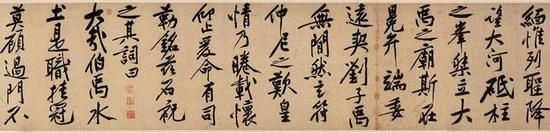 緬惟列聖降
望大河砥柱
之峯桀立大
禹之廟斯在
冕弁端委
遠契劉子禹
無閒然玄符
仲尼之歎皇
情乃睠載懷
仰止爰命有司
勒銘茲石祝
之其詞曰
大哉伯禹水
土是職挂冠
莫顧過門不